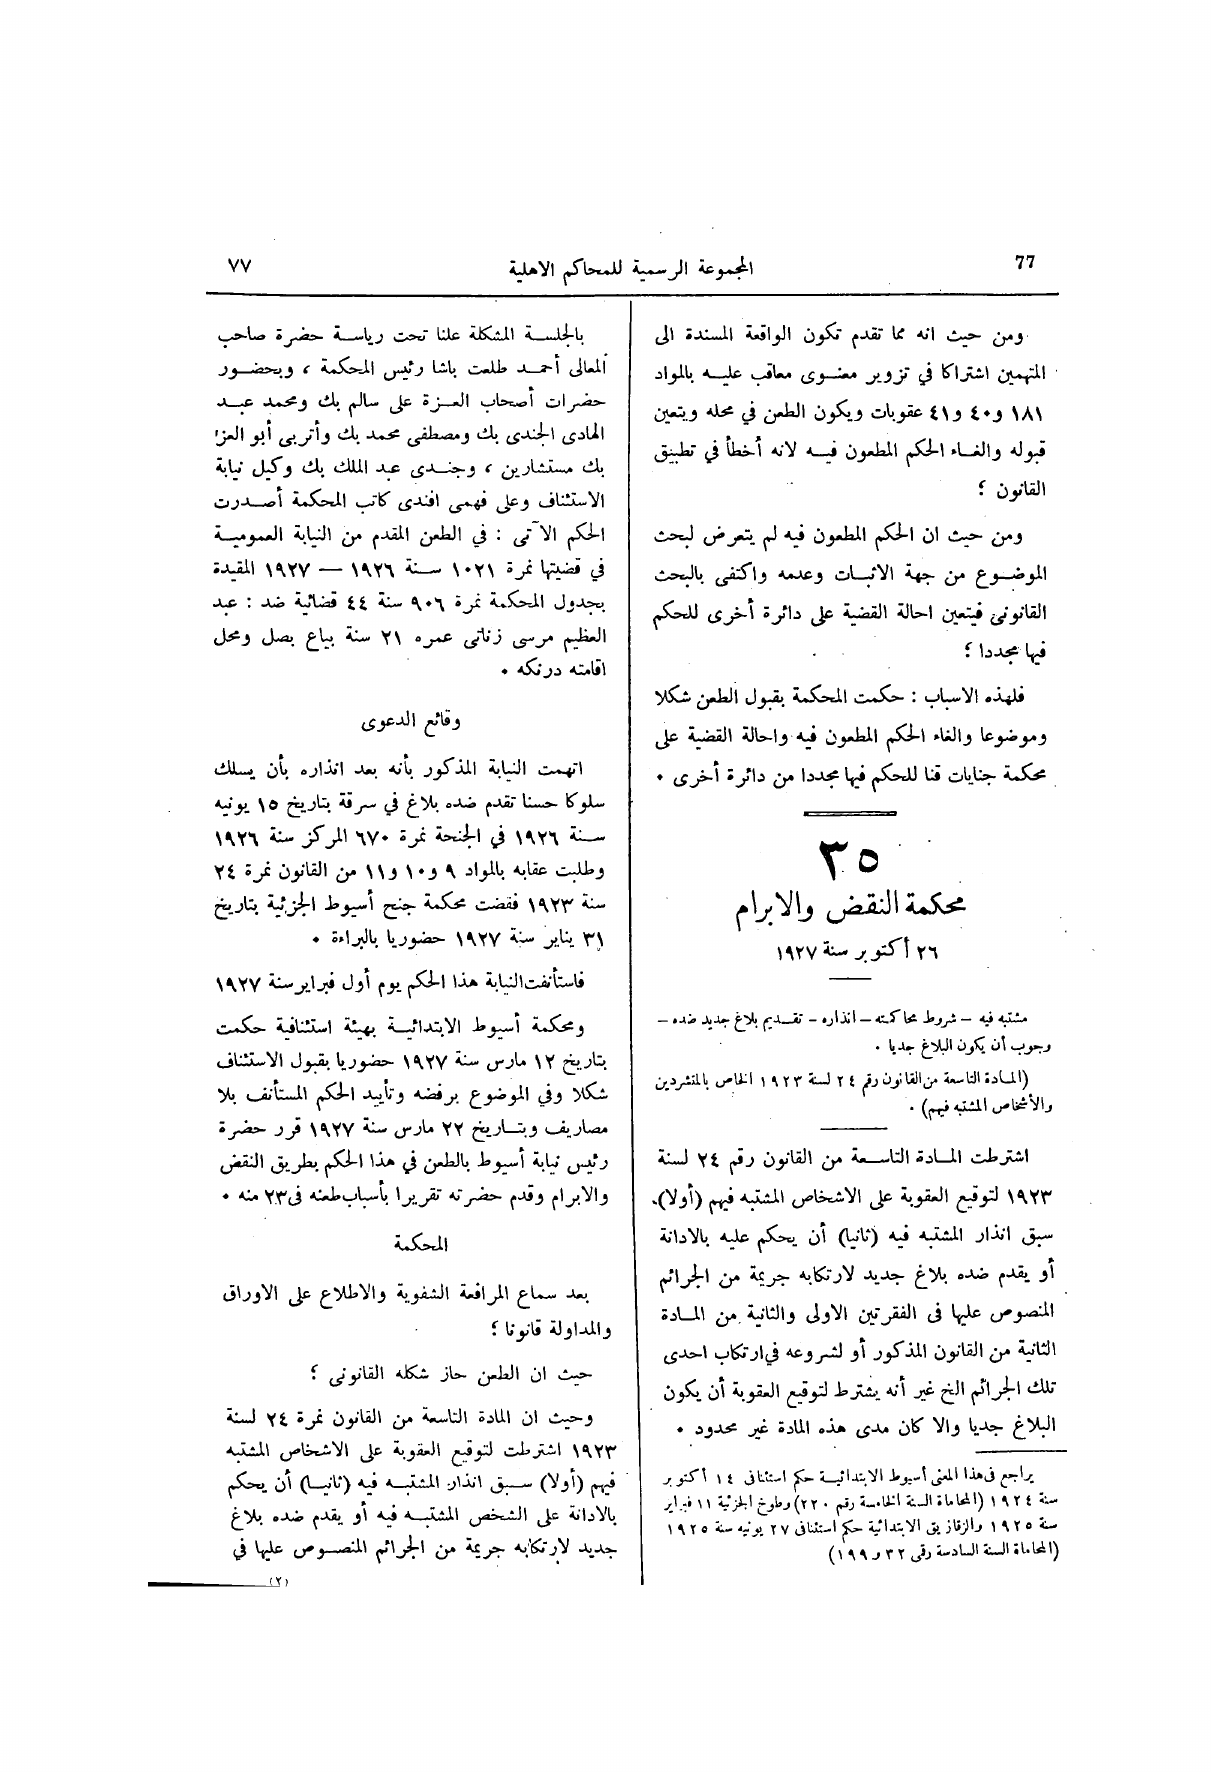 77
المجموعة الرسمية للمحاكم الاهلية
٧٧
ومن حيث انه مما تقدم تكون الواقعة المسندة الى
المتهمين اشتراكا في تزوير معنوى معاقب عليه بالمواد
١٨١ و٤٠ و٤١ عقوبات ويكون الطعن في محله ويتعين
قبوله والغاء الحكم المطعون فيه لانه أخطأ في تطبيق
القانون ؟
ومن حيث ان الحكم المطعون فيه لم يتعرض لبحث
الموضوع من جهة الاثبات وعدمه واكتفى بالبحث
القانونى فيتعين احالة القضية على دائرة أخرى للحكم
فيها مجددا ؟
فلهذه الاسباب : حكمت المحكمة بقبول الطعن شكلا
وموضوعا والغاء الحكم المطعون فيه واحالة القضية على
محكمة جنايات قنا للحكم فيها مجددا من دائرة أخرى ٠
٣٥
محكمة النقض والابرام
٢٦ أكتوبر سنة ١٩٢٧
مشتبه فيه – شروط محاكمته – انذاره – تقديم بلاغ جديد ضده –
وجوب أن يكون البلاغ جديا ٠
(المادة التاسعة من القانون رقم ٢٤ لسنة ١٩٢٣ الخاص بالمتشردين
والأشخاص المشتبه فيهم) ٠
اشترطت المادة التاسعة من القانون رقم ٢٤ لسنة
١٩٢٣ لتوقيع العقوبة على الاشخاص المشتبه فيهم (أولا)
سبق انذار المشتبه فيه (ثانيا) أن يحكم عليه بالادانة
أو يقدم ضده بلاغ جديد لارتكابه جريمة من الجرائم
المنصوص عليها فى الفقرتين الاولى والثانية من المادة
الثانية من القانون المذكور أو لشروعه في ارتكاب احدى
تلك الجرائم الخ غير أنه يشترط لتوقيع العقوبة أن يكون
البلاغ جديا والا كان مدى هذه المادة غير محدود ٠
يراجع فى هذا المعنى أسيوط الابتدائية حكم استئنافى ١٤ أكتوبر
سنة ١٩٢٤ (المحاماة السنة الخامسة رقم ٢٢٠) وطوخ الجزئية ١١ فبراير
سنة ١٩٢٥ والزقازيق الابتدائية حكم استئنافى ٢٧ يونيه سنة ١٩٢٥
(المحاماة السنة السادسة رقمى ٣٢ و١٩٩)
بالجلسة المشكلة علنا تحت رياسة حضرة صاحب
المعالى أحمد طلعت باشا رئيس المحكمة ، وبحضور
حضرات أصحاب العزة على سالم بك ومحمد عبد
الهادى الجندى بك ومصطفى محمد بك وأتربى أبو العز
بك مستشارين ، وجندى عبد الملك بك وكيل نيابة
الاستئناف وعلى فهمى افندى كاتب المحكمة أصدرت
الحكم الآتى : في الطعن المقدم من النيابة العمومية
في قضيتها نمرة ١٠٢١ سنة ١٩٢٦ – ١٩٢٧ المقيدة
بجدول المحكمة نمرة ٩٠٦ سنة ٤٤ قضائية ضد : عبد
العظيم مرسى زناتى عمره ٢١ سنة بياع بصل ومحل
اقامته درنكه ٠
وقائع الدعوى
اتهمت النيابة المذكور بأنه بعد انذاره بأن يسلك
سلوكا حسنا تقدم ضده بلاغ في سرقة بتاريخ ١٥ يونيه
سنة ١٩٢٦ في الجنحة نمرة ٦٧٠ المركز سنة ١٩٢٦
وطلبت عقابه بالمواد ٩ و١٠ و١١ من القانون نمرة ٢٤
سنة ١٩٢٣ فقضت محكمة جنح أسيوط الجزئية بتاريخ
٣١ يناير سنة ١٩٢٧ حضوريا بالبراءة ٠
فاستأنفت النيابة هذا الحكم يوم أول فبراير سنة ١٩٢٧
ومحكمة أسيوط الابتدائية بهيئة استئنافية حكمت
بتاريخ ١٢ مارس سنة ١٩٢٧ حضوريا بقبول الاستئناف
شكلا وفي الموضوع برفضه وتأييد الحكم المستأنف بلا
مصاريف وبتاريخ ٢٢ مارس سنة ١٩٢٧ قرر حضرة
رئيس نيابة أسيوط بالطعن في هذا الحكم بطريق النقض
والابرام وقدم حضرته تقريرا بأسباب طعنه فى ٢٣ منه ٠
المحكمة
بعد سماع المرافعة الشفوية والاطلاع على الاوراق
والمداولة قانونا ؟
حيث ان الطعن حاز شكله القانونى ؟
وحيث ان المادة التاسعة من القانون نمرة ٢٤ لسنة
١٩٢٣ اشترطت لتوقيع العقوبة على الاشخاص المشتبه
فيهم (أولا) سبق انذار المشتبه فيه (ثانيا) أن يحكم
بالادانة على الشخص المشتبه فيه أو يقدم ضده بلاغ
جديد لارتكابه جريمة من الجرائم المنصوص عليها في
(٢)